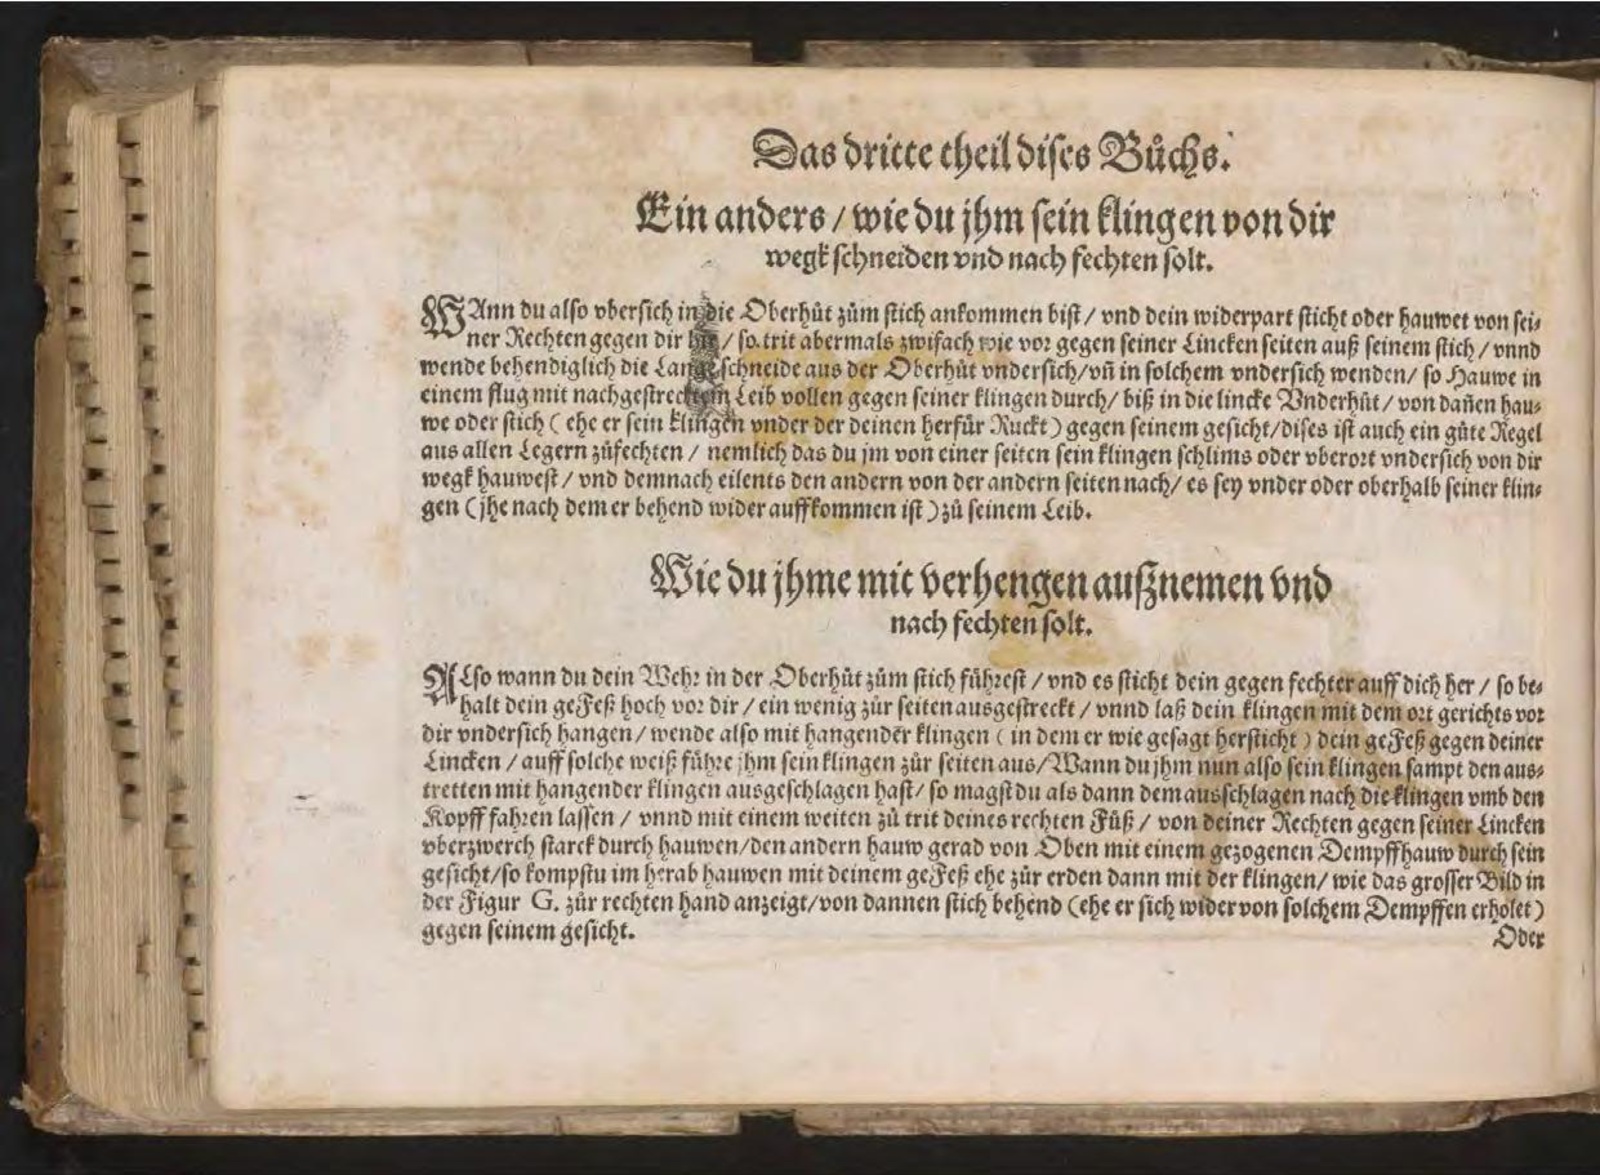 Das dritte theil diſes Bůchs.
Ein anders / wie du jhm ſein klingen von dir
wegk ſchneiden vnd nach fechten ſolt.
WAnn du alſo vberſich in die Oberhůt zům ſtich ankommen biſt / vnd dein widerpart ſticht oder hauwet von ſei⸗
ner Rechten gegen dir / ſo trit abermals zwifach wie vor gegen ſeiner Lincken ſeiten auß ſeinem ſtich / vnnd
wende behendiglich die Lange ſchneide aus der Oberhůt vnderſich / vñ in ſolchem vnderſich wenden / ſo Hauwe in
einem flug mit nachgeſtrecktem Leib vollen gegen ſeiner klingen durch / biß in die lincke Vnderhůt / von dañen hau⸗
we oder ſtich ( ehe er ſein klingen vnder der deinen herfür Ruckt ) gegen ſeinem geſicht / diſes iſt auch ein gůte Regel
aus allen Legern zůfechten / nemlich das du jm von einer ſeiten ſein klingen ſchlims oder vberort vnderſich von dir
wegk hauweſt / vnd demnach eilents den andern von der andern ſeiten nach / es ſey vnder oder oberhalb ſeiner klin⸗
gen ( jhe nach dem er behend wider auffkommen iſt ) zů ſeinem Leib.
Wie du jhme mit verhengen außnemen vnd
nach fechten ſolt.
ALſo wann du dein Wehr in der Oberhůt zům ſtich führeſt / vnd es ſticht dein gegen fechter auff dich her / ſo be⸗
halt dein geFeß hoch vor dir / ein wenig zůr ſeiten ausgeſtreckt / vnnd laß dein klingen mit dem ort gerichts vor
dir vnderſich hangen / wende alſo mit hangender klingen ( in dem er wie geſagt herſticht ) dein geFeß gegen deiner
Lincken / auff ſolche weiß führe jhm ſein klingen zůr ſeiten aus / Wann du jhm nun alſo ſein klingen ſampt den aus⸗
tretten mit hangender klingen ausgeſchlagen haſt / ſo magſt du als dann dem ausſchlagen nach die klingen vmb den
Kopff fahren laſſen / vnnd mit einem weiten zů trit deines rechten Fůß / von deiner Rechten gegen ſeiner Lincken
vberzwerch ſtarck durch hauwen / den andern hauw gerad von Oben mit einem gezogenen Dempffhauw durch ſein
geſicht / ſo kompſtu im herab hauwen mit deinem geFeß ehe zůr erden dann mit der klingen / wie das groſſer Bild in
der Figur G. zůr rechten hand anzeigt / von dannen ſtich behend ( ehe er ſich wider von ſolchem Dempffen erholet )
gegen ſeinem geſicht.
Oder